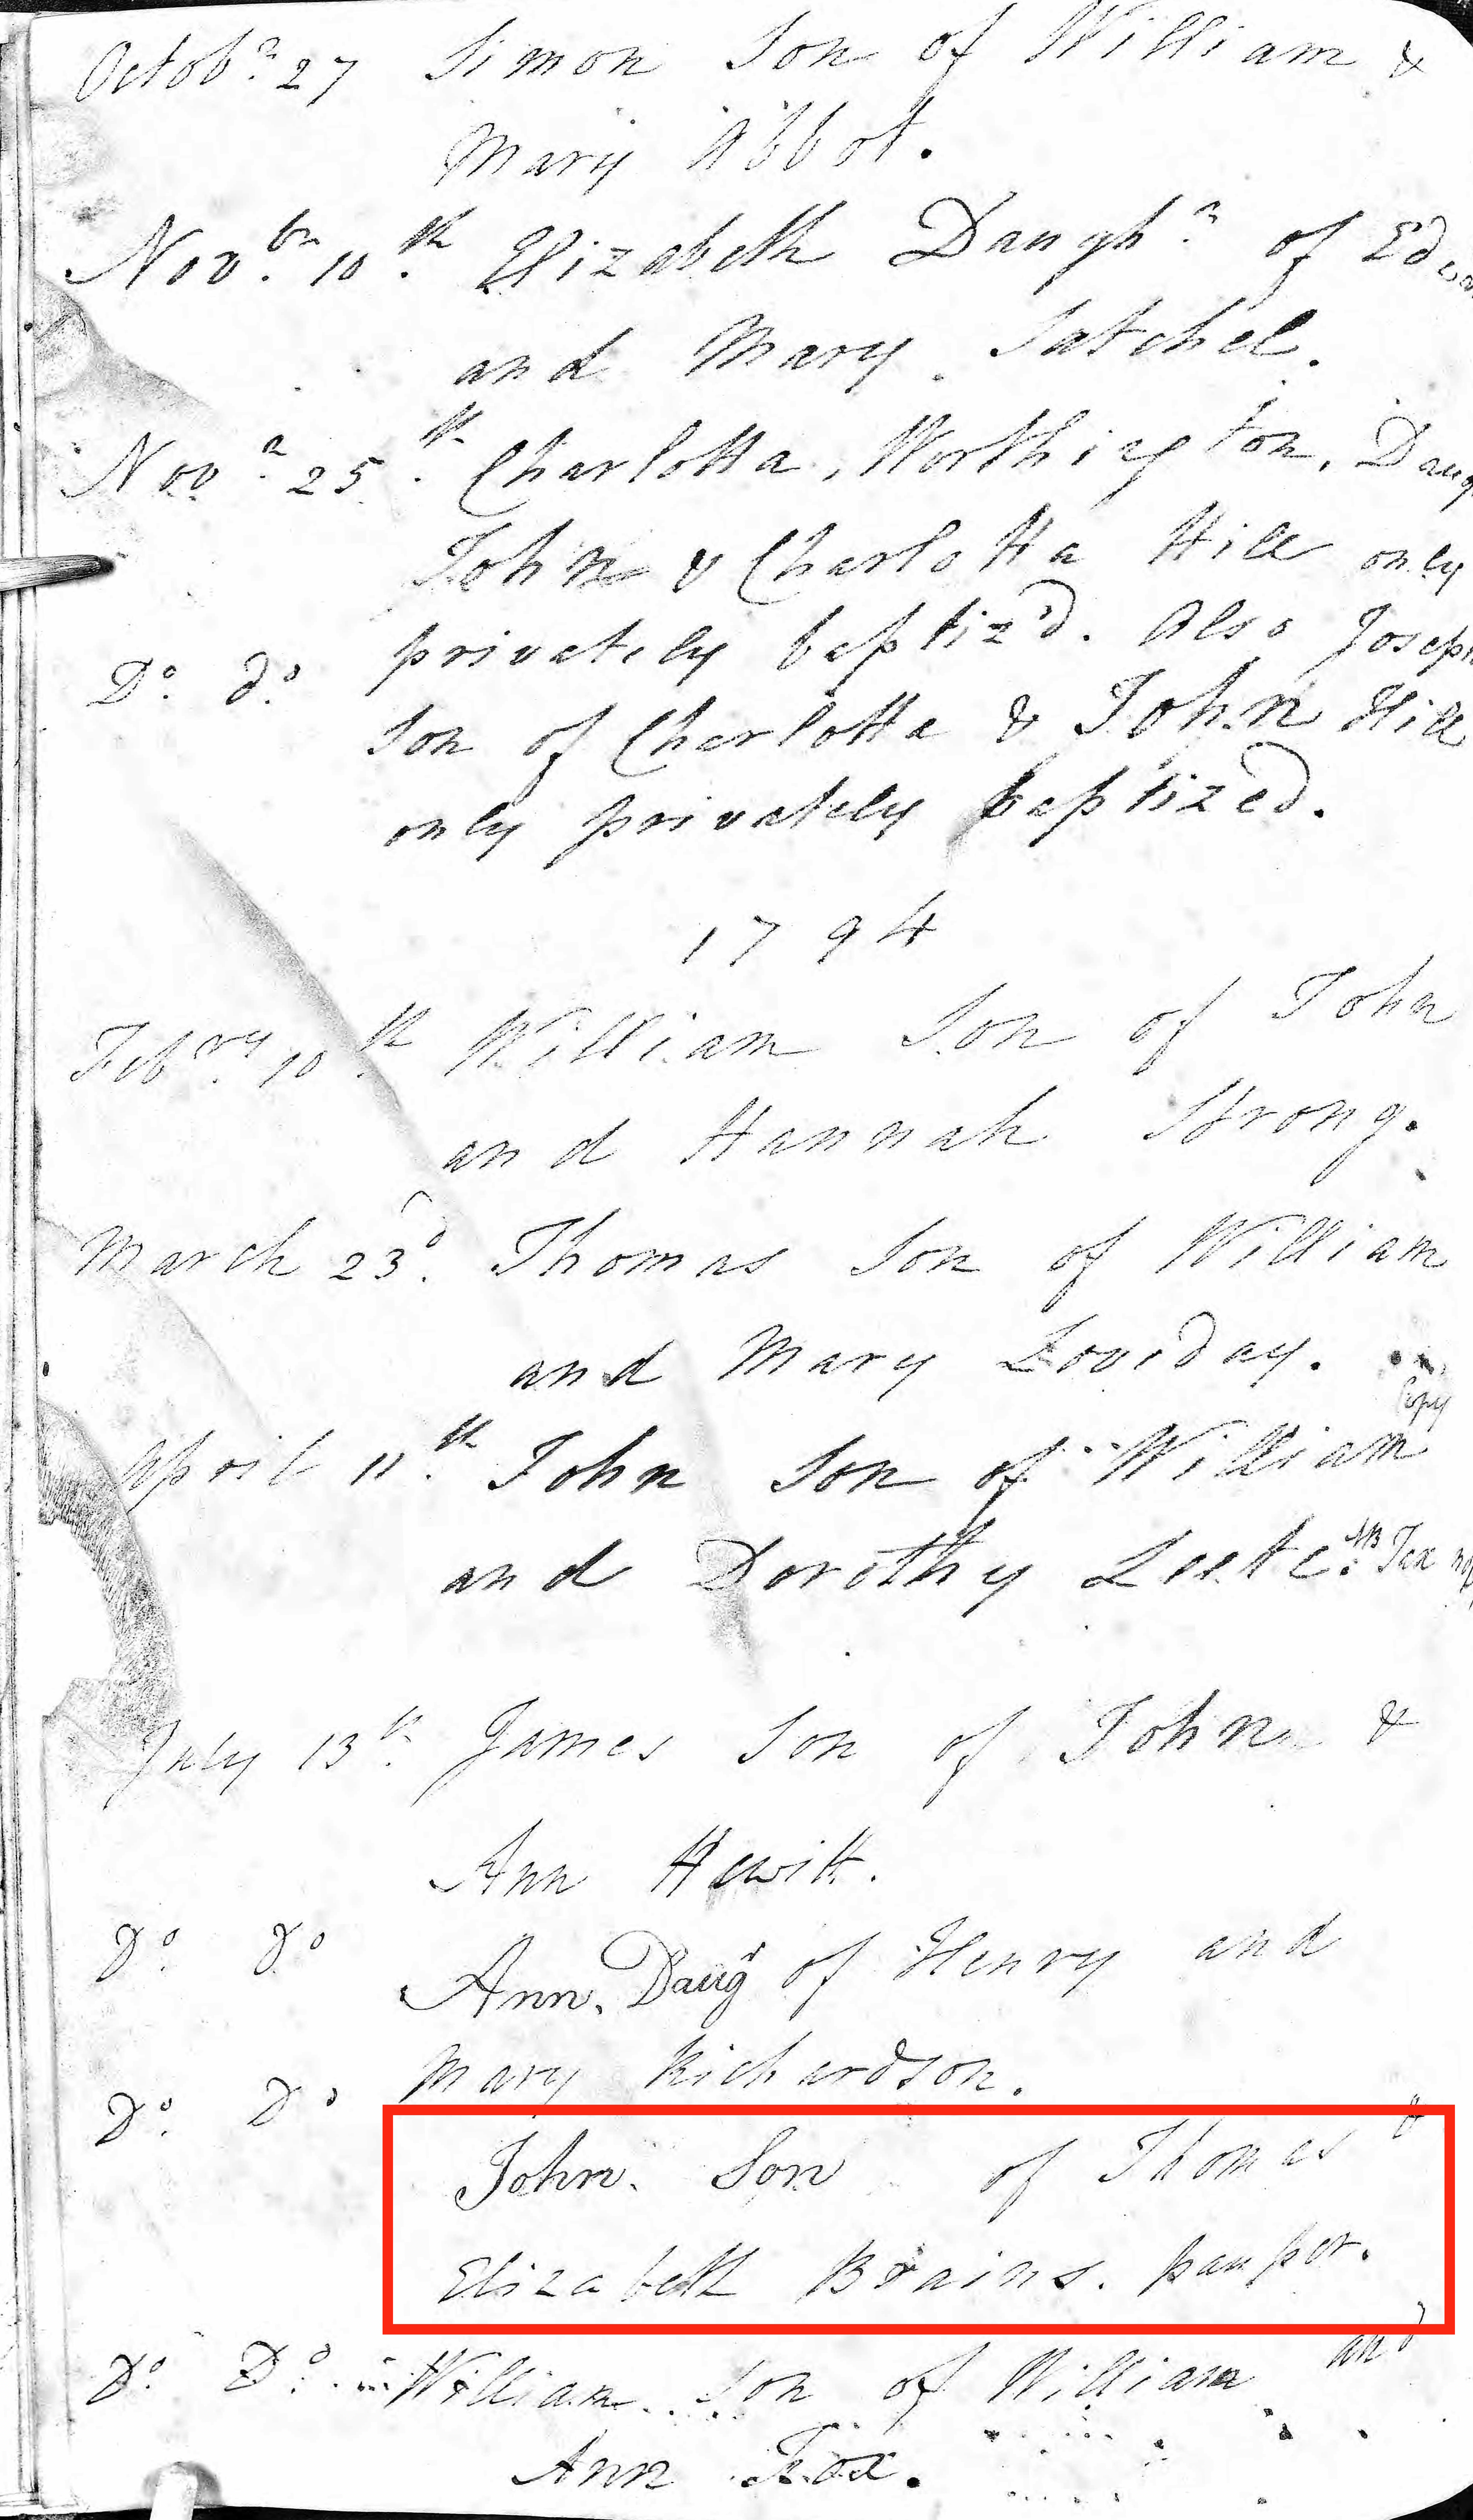 Octobr. 27 Simon Son of William &
Mary Abbot.
Novbr. 10th. Elizabeth Daughr. of
and Mary Satchel.
Novr. 25th. Charlotta, Worthington, Daug
John & Charlotta Hill only
privately baptiz'd. Also Joseph
Do. do. Son of Charlotta & John Hill
only privately baptized.
1794
Febry. 10th William Son of John
and Hannah Strong.
March 23d. Thomas Son of William
and Mary Loviday.
Copy
April 11th. John Son of William
and Dorothy Leete. NB Tax
July 13th. James Son of John &
Ann Hewitt.
Do. Do Ann, Daugr of Henry and
Mary Richardson.
Do. Do John. Son of Thomas &
Elizabeth Brains. pauper.
Do. Do. William Son of William and
Ann Fox.